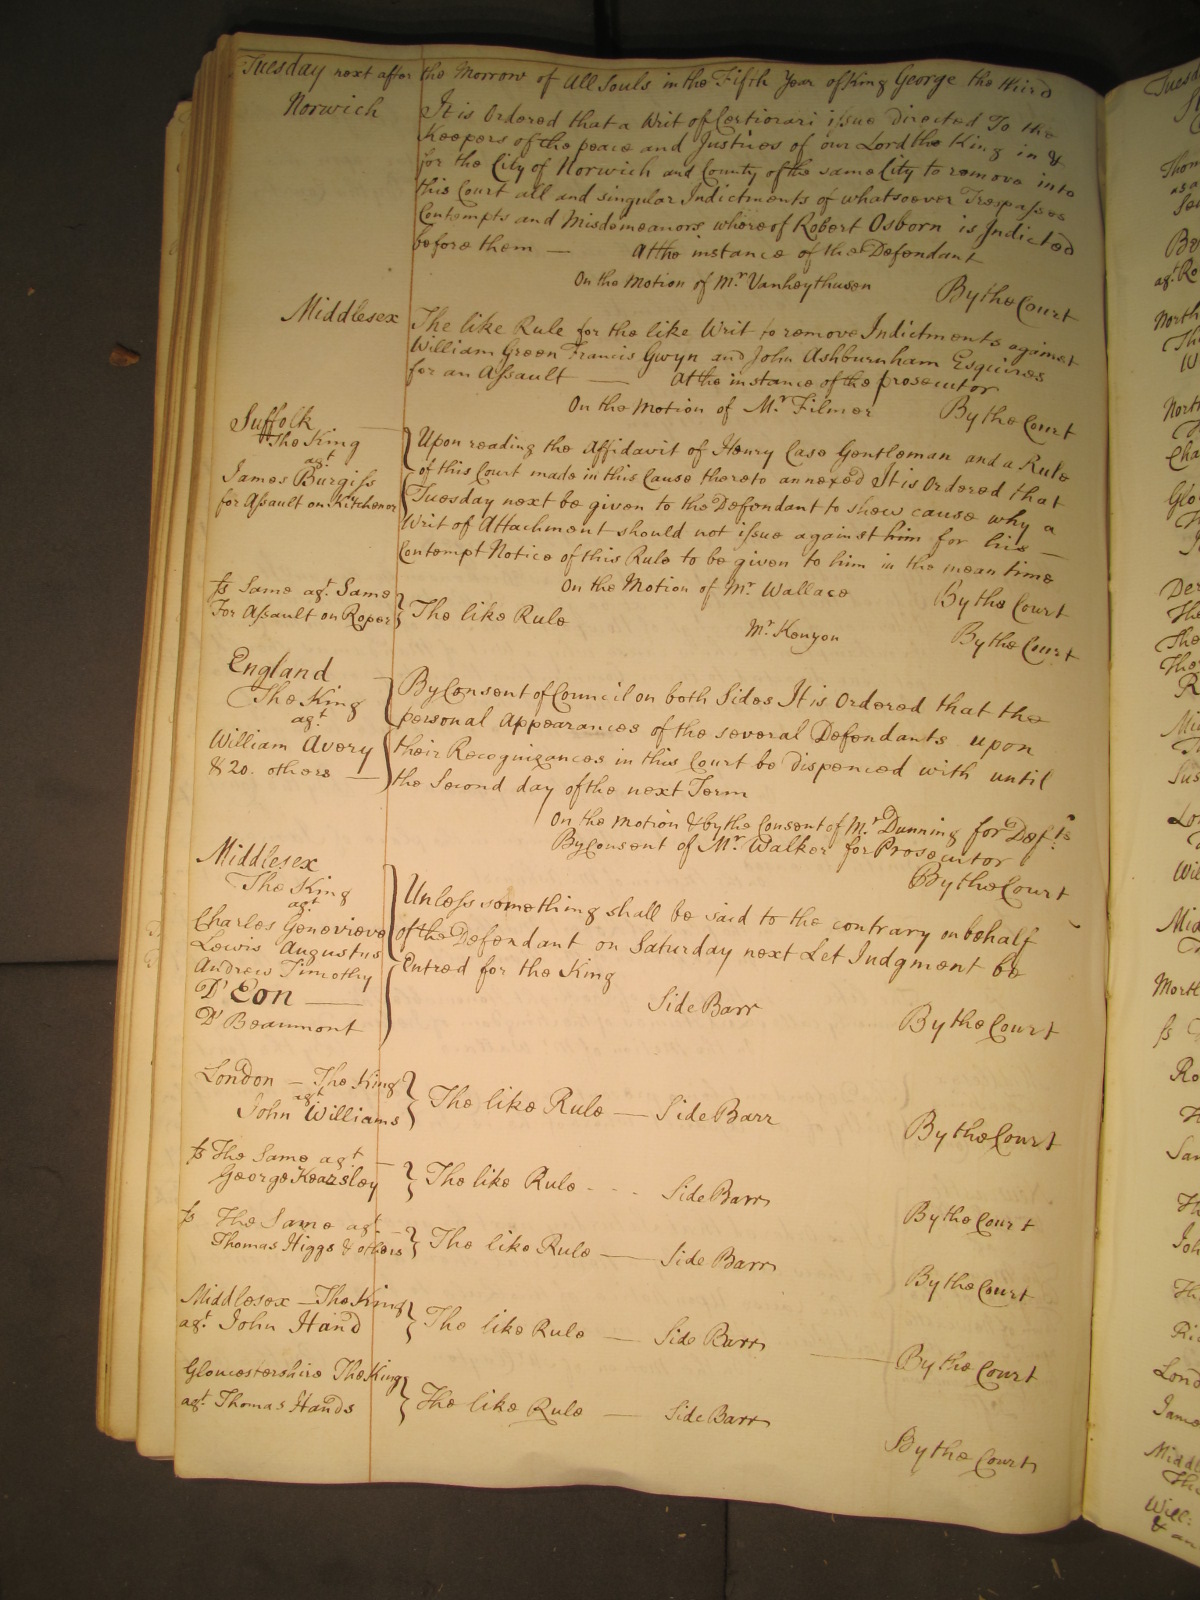 Tuesday next after the Morrow of All Souls in the Fifth Year of King George the third
Norwich
It is Ordered that a Writ of Certiorari issue Directed To the
Keepers of the peace and Justices of our Lord the King in &
for the City of Norwich and County of the same City to remove into
this Court all and singular Indictments of whatsoever Trespasses
Contempts and Misdemeanors whereof Robert Osborn is Indicted
before them — At the instance of the Defendant
On the Motion of Mr. Vanheythusen
By the Court
Middlesex
The like Rule for the like Writ to remove Indictments against
William Green Francis Gwyn and John Ashburnham Esquires
for an Assault — At the instance of the prosecutor
On the Motion of Mr. Filmer By the Court
Suffolk
The King
agt
James Burgiss
for Assault on Kitchener
Upon reading the Affidavit of Henry Case Gentleman and a Rule
of this Court made in this Cause thereto annexed It is Ordered that
Tuesday next be given to the Defendant to shew cause why a
Writ of Attachment should not issue against him for his —
Contempt Notice of this Rule to be given to him in the mean time
On the Motion of Mr. Wallace By the Court
ss Same agt. Same
For Assault on Roper
The like Rule
Mr. Kenyon By the Court
England
The King
agt
William Avery
& 20. others —
By Consent of Council on both Sides It is Ordered that the
personal Appearances of the several Defendants upon
their Recognizances in this Court be Dispenced with until
the Second day of the next Term
On the Motion & by the Consent of Mr. Dunning for Def.ts
By Consent of Mr. Walker for Prosecutor
By the Court
Middlesex
The King
agt
Charles Genevieve
Lewis Augustus
Andrew Timothy
D' Eon —
D' Beaumont
Unless something shall be said to the contrary on behalf
of the Defendant on Saturday next Let Judgment be
Entred for the King
Side Barr By the Court
London — The King
agt
John Williams
The like Rule — Side Barr
By the Court
ss The Same agt —
George Kearsley
The like Rule - - - Side Barr
By the Court
ss The Same agt —
Thomas Higgs & others
The like Rule — Side Barr
By the Court
Middlesex — The King
agt. John Hand
The like Rule — Side Barr
— By the Court
Gloucestershire The King
agt. Thomas Hands
The like Rule — Side Barr
By the Court